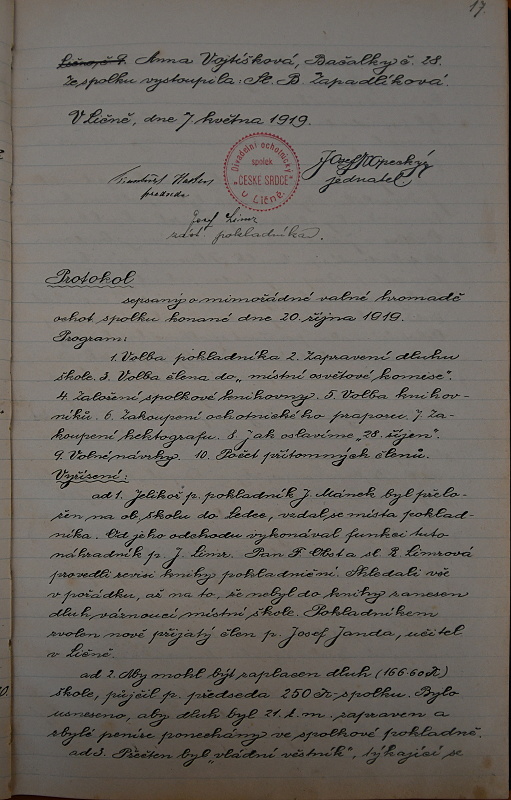 17.
Anna Vojtíšková, Bašalky č. 28.
Ze spolku vystoupila: Sl. B. Zapadlíková.
V Líčně, dne 7. května 1919.
Divadelní ochotnický
spolek
„ČESKÉ SRDCE"
v Líčně.
Josef Kopecký
jednatel
předseda
Josef Limr
zást. pokladníka.
Protokol
sepsaný o mimořádné valné hromadě
ochot. spolku konané dne 20. října 1919.
Program:
1. Volba pokladníka 2. Zapravení dluhu
škole. 3. Volba člena do „místní osvětové komise".
4. Založení spolkové knihovny. 5. Volba knihov-
níků. 6. Zakoupení ochotnického praporu. 7. Za-
koupení hektografu. 8. Jak oslavíme „28. říjen".
9. Volné návrhy. 10. Počet přítomných členů.
Vyřízení:
ad 1. Jelikož p. pokladník J. Mánek byl přelo-
žen na ob. školu do Ledec, vzdal se místa poklad-
níka. Od jeho odchodu vykonával funkci tuto
náhradník p. J. Limr. Pan F. Obst a sl. R. Limrová
provedli revisi knihy pokladniční. Shledali vše
v pořádku, až na to, že nebyl do knihy zanesen
dluh, váznoucí místní škole. Pokladníkem
zvolen nově přijatý člen p. Josef Janda, učitel
v Líčně.
ad 2. Aby mohl být zaplacen dluh (166·60 K)
škole, půjčil p. předseda 250 K spolku. Bylo
usneseno, aby dluh byl 21. t. m. zapraven a
zbylé peníze ponechány ve spolkové pokladně.
ad 3. Přečten byl „vládní věstník", týkající se